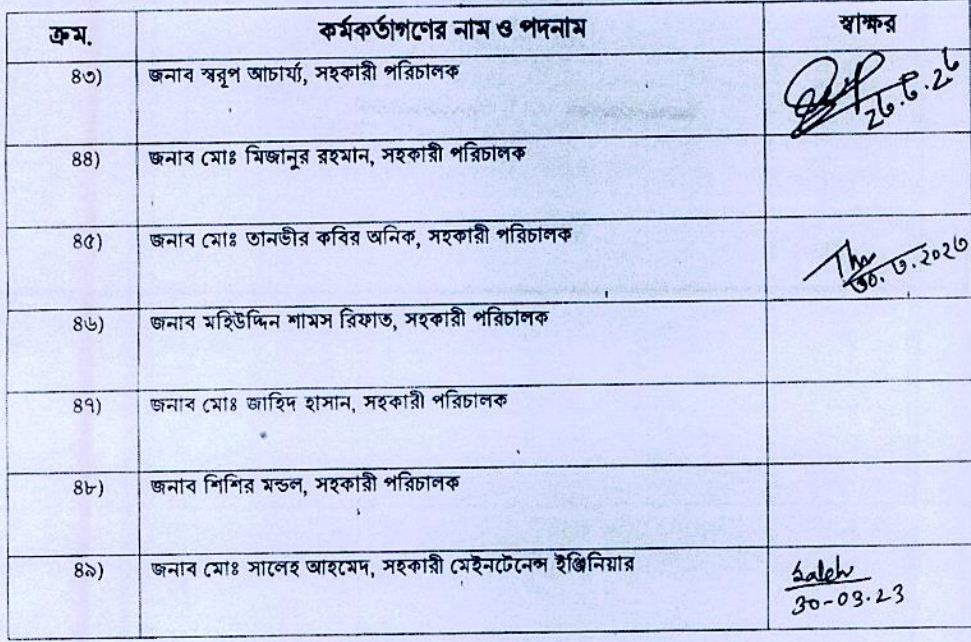 ক্রম. কর্মকর্তাগণের নাম ও পদনাম স্বাক্ষর
৪৩) জনাব স্বরূপ আচার্য্য, সহকারী পরিচালক
৪৪) জনাব মোঃ মিজানুর রহমান, সহকারী পরিচালক
৪৫) জনাব মোঃ তানভীর কবির অনিক, সহকারী পরিচালক
৩০.৩.২০২৩
৪৬) জনাব মহিউদ্দিন শামস রিফাত, সহকারী পরিচালক
৪৭) জনাব মোঃ জাহিদ হাসান, সহকারী পরিচালক
৪৮) জনাব শিশির মন্ডল, সহকারী পরিচালক
৪৯) জনাব মোঃ সালেহ আহমেদ, সহকারী মেইনটেনেন্স ইঞ্জিনিয়ার
Saleh
30-03.23